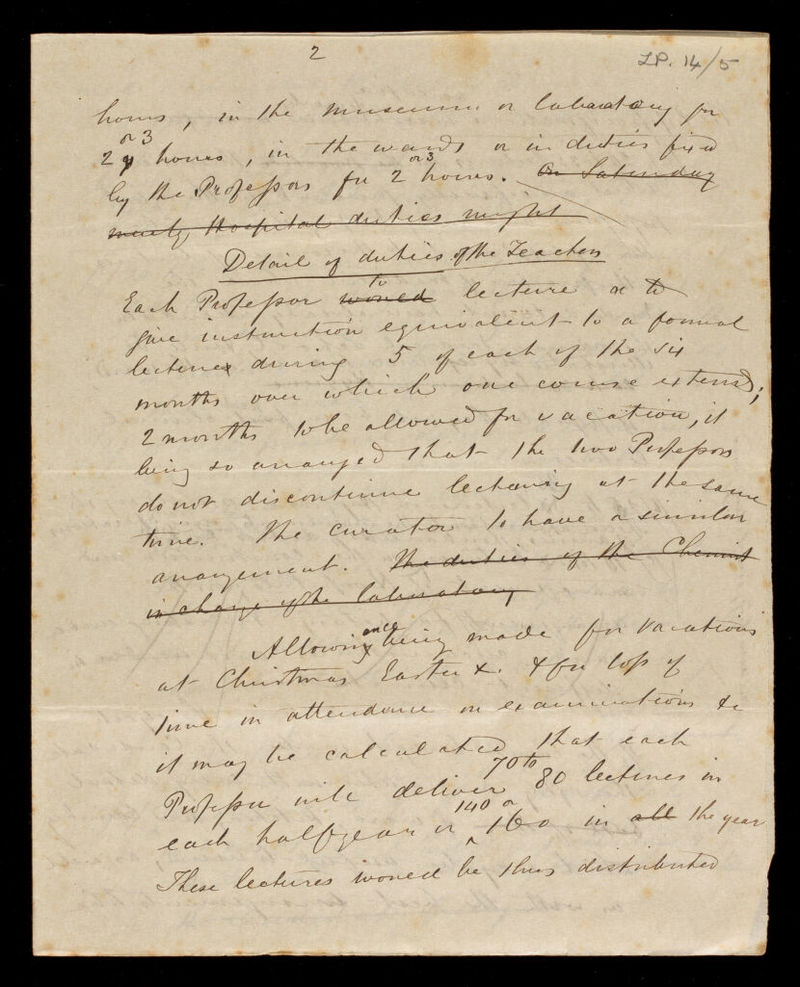 2
LP. 14/5
hours, in the museum or laboratory for
or 3
2 hours, in the wards or in duties fixed
or 3
by the Professors for 2 hours. On Saturday
merely Hospital duties might
Detail of duties of the Teachers
to
Each Professor would lecture or to
give instruction equivalent to a formal
lecture during 5 of each of the six
months over which one course extends;
2 months to be allowed for vacation, it
being so arranged that the two Professors
do not discontinue lecturing at the same
time. The curator to have a similar
arrangement. The duties of the Chemist
in charge of the laboratory
ance
Allowing being made for vacations
at Christmas Easter &. & for loss of
time in attendance on examinations &c
it may be calculated that each
70 to
Professor will deliver 80 lectures in
140 or
each half year or 160 in all the year
These lectures would be thus distributed